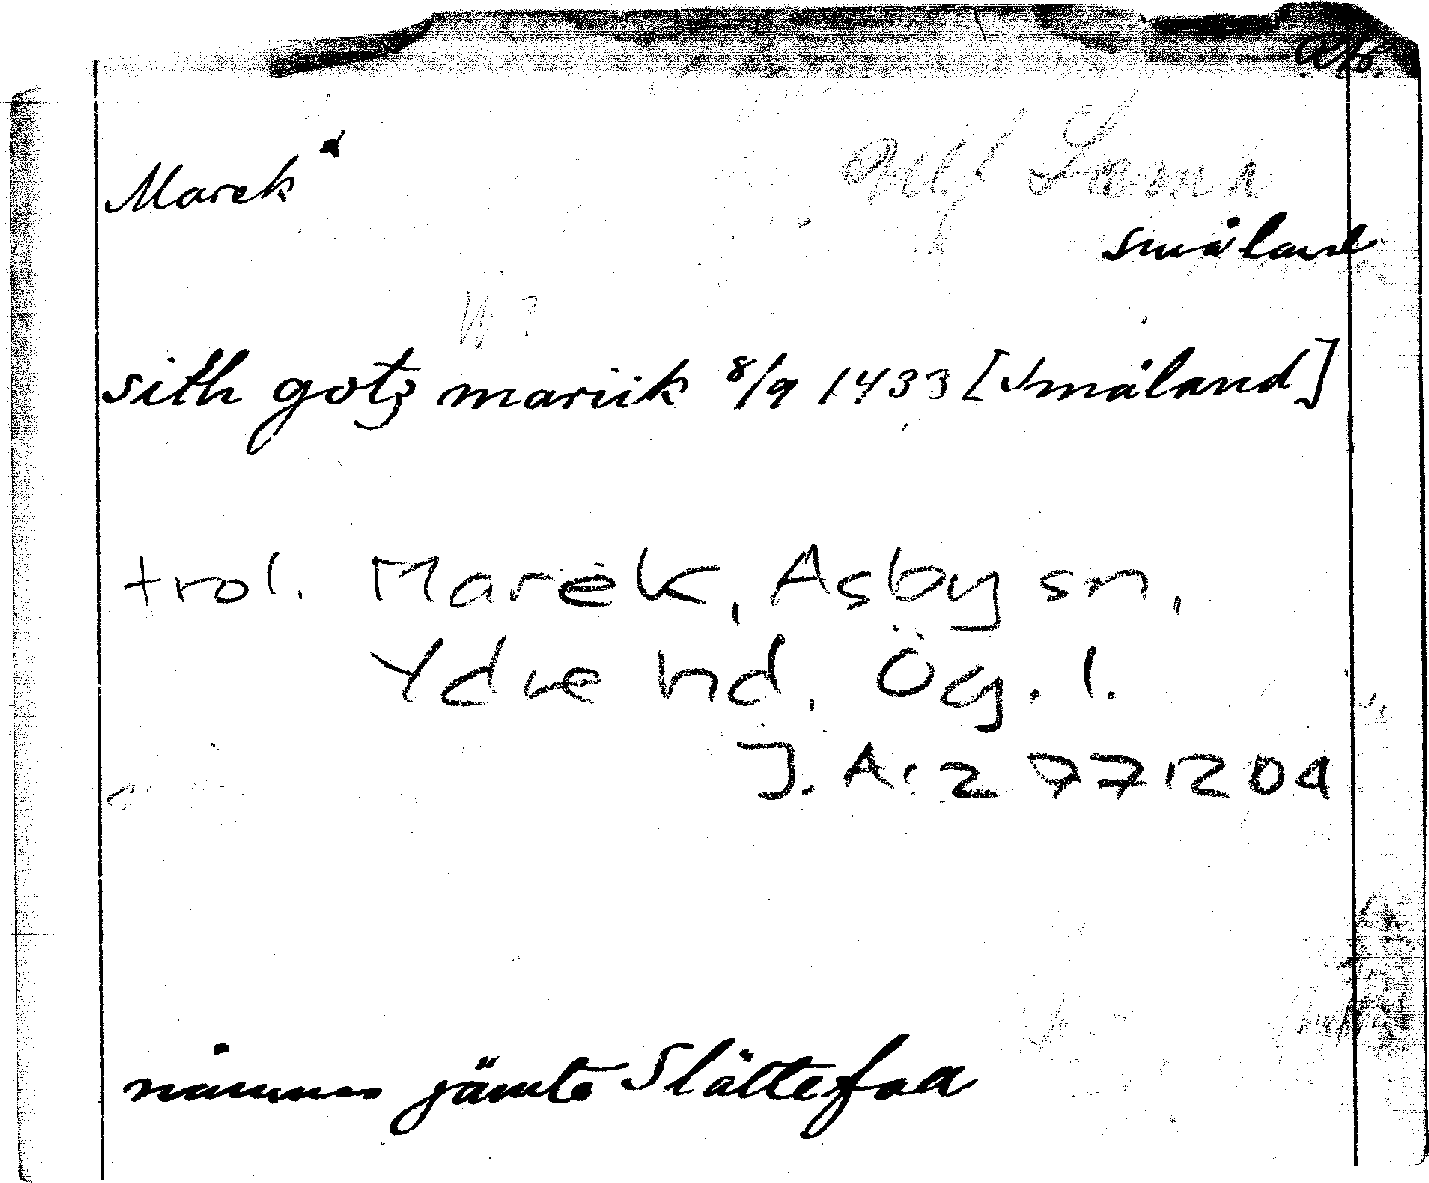 Marek
Småland
sith gotz mariik 8/9 1433 [Småland]
trol. Marek, Asby sn,
Ydre hd, Ög. l.
J. A:2 771204
nämnes jämte Slättefa